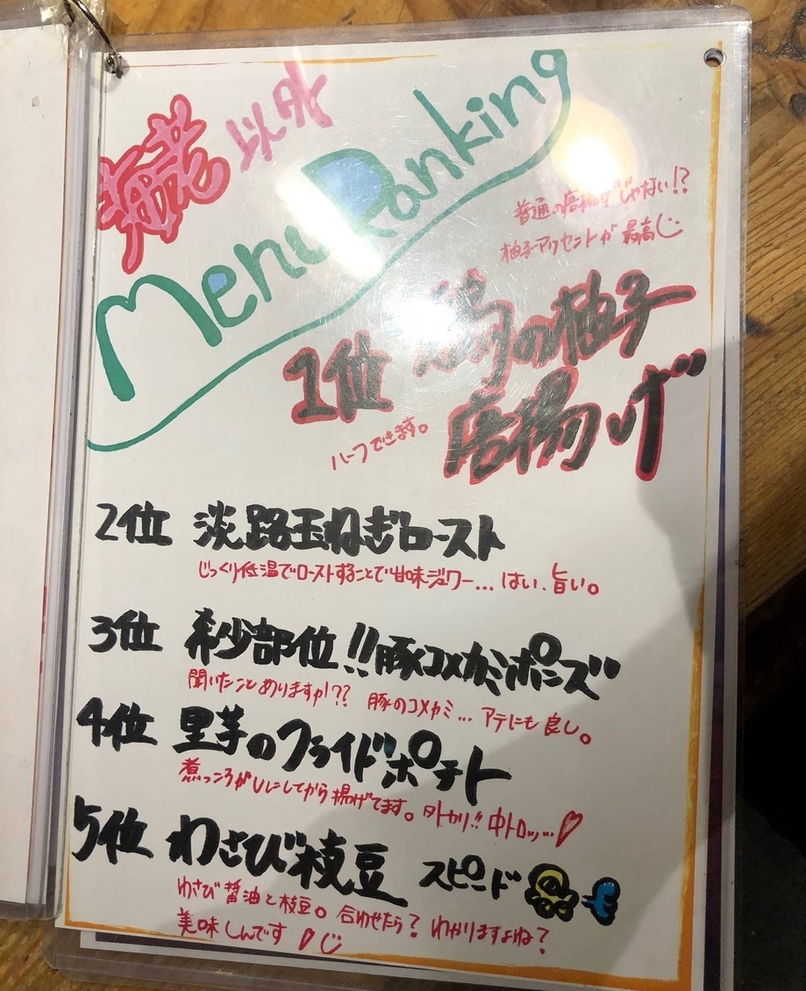 海老 以外
Menu Ranking
普通の唐揚げじゃない!?
柚子アクセントが最高
1位 鶏の柚子
唐揚げ
ハーフできます。
2位 淡路玉ねぎロースト
じっくり低温でローストすることで甘味ジュワー... はい、旨い。
3位 希少部位!!豚コメカミポンズ
聞いたことありますか!?? 豚のコメカミ... アテにも良し。
4位 里芋のフライドポテト
煮っころがしにしてから揚げてます。外カリ!! 中トロッ...
5位 わさび枝豆 スピード
わさび醤油と枝豆。合わせたら? わかりますよね?
美味しんです